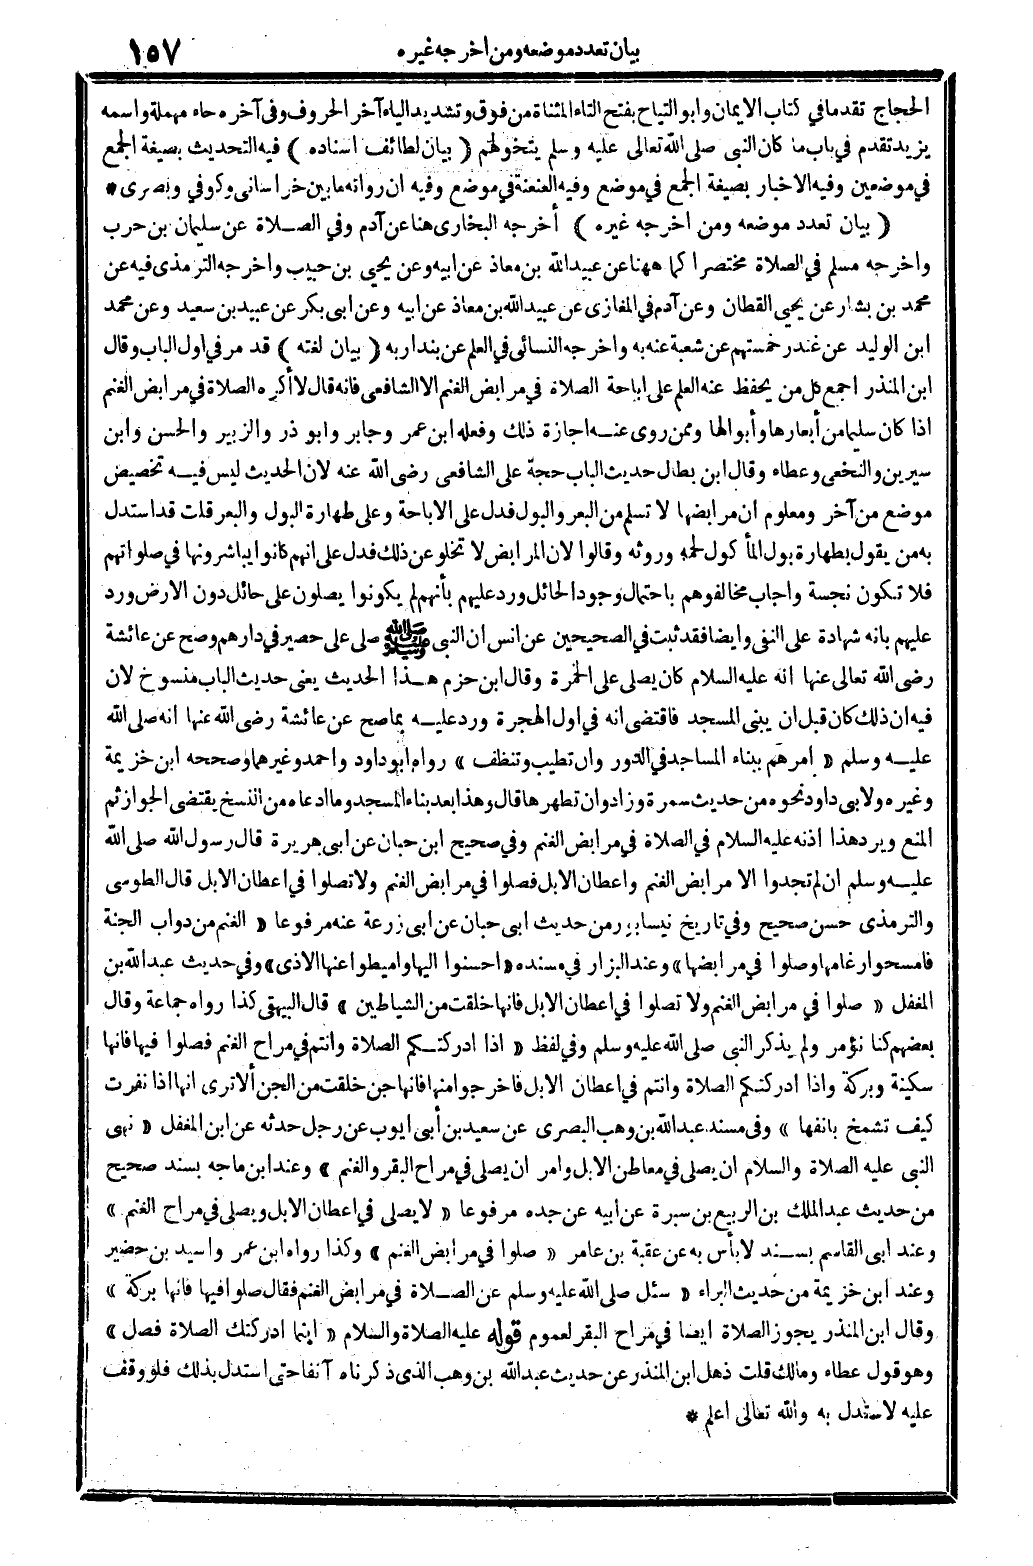 بيان تعدد موضعه ومن اخرجه غيره ١٥٧
الحجاج تقدما في كتاب الايمان وابو التياح بفتح التاء المثناة من فوق وتشديد الياء آخر الحروف وفى آخره حاء مهملة واسمه
يزيد تقدم في باب ما كان النبى صلى الله تعالى عليه وسلم يتخولهم ( بيان لطائف اسناده ) فيه التحديث بصيغة الجمع
في موضعين وفيه الاخبار بصيغة الجمع في موضع وفيه العنعنة في موضع وفيه ان رواته ما بين خراسانى وكوفي وبصرى *
( بيان تعدد موضعه ومن اخرجه غيره ) أخرجه البخارى هنا عن آدم وفي الصلاة عن سليمان بن حرب
واخرجه مسلم في الصلاة مختصرا كما ههنا عن عبيد الله بن معاذ عن ابيه وعن يحيى بن حبيب واخرجه الترمذى فيه عن
محمد بن بشار عن يحيى القطان وعن آدم في المغازى عن عبيد الله بن معاذ عن ابيه وعن ابى بكر عن عبيد بن سعيد وعن محمد
ابن الوليد عن غندر خمستهم عن شعبة عنه به واخرجه النسائى في العلم عن بندار به ( بيان لغته ) قد مر في اول الباب وقال
ابن المنذر اجمع كل من يحفظ عنه العلم على اباحة الصلاة في مرابض الغنم الا الشافعى فانه قال لا أكره الصلاة في مرابض الغنم
اذا كان سليما من أبعارها وأبوالها وممن روى عنه اجازة ذلك وفعله ابن عمر وجابر وابو ذر والزبير والحسن وابن
سيرين والنخعى وعطاء وقال ابن بطال حديث الباب حجة على الشافعى رضى الله عنه لان الحديث ليس فيه تخصيص
موضع من آخر ومعلوم ان مرابضها لا تسلم من البعر والبول فدل على الاباحة وعلى طهارة البول والبعر قلت قد استدل
به من يقول بطهارة بول المأكول لحمه وروثه وقالوا لان المرابض لا تخلو عن ذلك فدل على انهم كانوا يباشرونها في صلواتهم
فلا تكون نجسة واجاب مخالفوهم باحتمال وجود الحائل ورد عليهم بأنهم لم يكونوا يصلون على حائل دون الارض ورد
عليهم بانه شهادة على النفى وايضا فقد ثبت في الصحيحين عن انس ان النبى ﷺ صلى على حصير في دارهم وصح عن عائشة
رضى الله تعالى عنها انه عليه السلام كان يصلى على الخمرة وقال ابن حزم هذا الحديث يعنى حديث الباب منسوخ لان
فيه ان ذلك كان قبل ان يبنى المسجد فاقتضى انه في اول الهجرة ورد عليه بما صح عن عائشة رضى الله عنها انه صلى الله
عليه وسلم « امرهم ببناء المساجد في الدور وان تطيب وتنظف » رواه ابو داود واحمد وغيرهما وصححه ابن خزيمة
وغيره ولابى داود نحوه من حديث سمرة وزاد وان تطهرها قال وهذا بعد بناء المسجد وما ادعاه من النسخ يقتضى الجواز ثم
المنع ويرد هذا اذنه عليه السلام في الصلاة في مرابض الغنم وفي صحيح ابن حبان عن ابى هريرة قال رسول الله صلى الله
عليه وسلم ان لم تجدوا الا مرابض الغنم واعطان الابل فصلوا في مرابض الغنم ولا تصلوا في اعطان الابل قال الطوسى
والترمذى حسن صحيح وفي تاريخ نيسابور من حديث ابى حبان عن ابى زرعة عنه مرفوعا « الغنم من دواب الجنة
فامسحوا رغامها وصلوا في مرابضها » وعند البزار في مسنده « احسنوا اليها واميطوا عنها الاذى » وفي حديث عبد الله بن
المغفل « صلوا في مرابض الغنم ولا تصلوا في اعطان الابل فانها خلقت من الشياطين » قال البيهقى كذا رواه جماعة وقال
بعضهم كنا نؤمر ولم يذكر النبى صلى الله عليه وسلم وفي لفظ « اذا ادركتكم الصلاة وانتم في مراح الغنم فصلوا فيها فانها
سكينة وبركة واذا ادركتكم الصلاة وانتم في اعطان الابل فاخرجوا منها فانها جن خلقت من الجن ألا ترى انها اذا نفرت
كيف تشمخ بانفها » وفي مسند عبد الله بن وهب البصرى عن سعيد بن أبى ايوب عن رجل حدثه عن ابن المغفل « نهى
النبى عليه الصلاة والسلام ان يصلى في معاطن الابل وامر ان يصلى في مراح البقر والغنم » وعند ابن ماجه بسند صحيح
من حديث عبد الملك بن الربيع بن سبرة عن أبيه عن جده مرفوعا « لا يصلى في اعطان الابل ويصلى في مراح الغنم »
وعند ابى القاسم بسند لا بأس به عن عقبة بن عامر « صلوا في مرابض الغنم » وكذا رواه ابن عمر واسيد بن حضير
وعند ابن خزيمة من حديث البراء « سئل صلى الله عليه وسلم عن الصلاة في مرابض الغنم فقال صلوا فيها فانها بركة »
وقال ابن المنذر يجوز الصلاة ايضا في مراح البقر لعموم قوله عليه الصلاة والسلام « اينما ادركتك الصلاة فصل »
وهو قول عطاء ومالك قلت ذهل ابن المنذر عن حديث عبد الله بن وهب الذى ذكرناه آنفا حتى استدل بذلك فلو وقف
عليه لاستدل به والله تعالى اعلم *